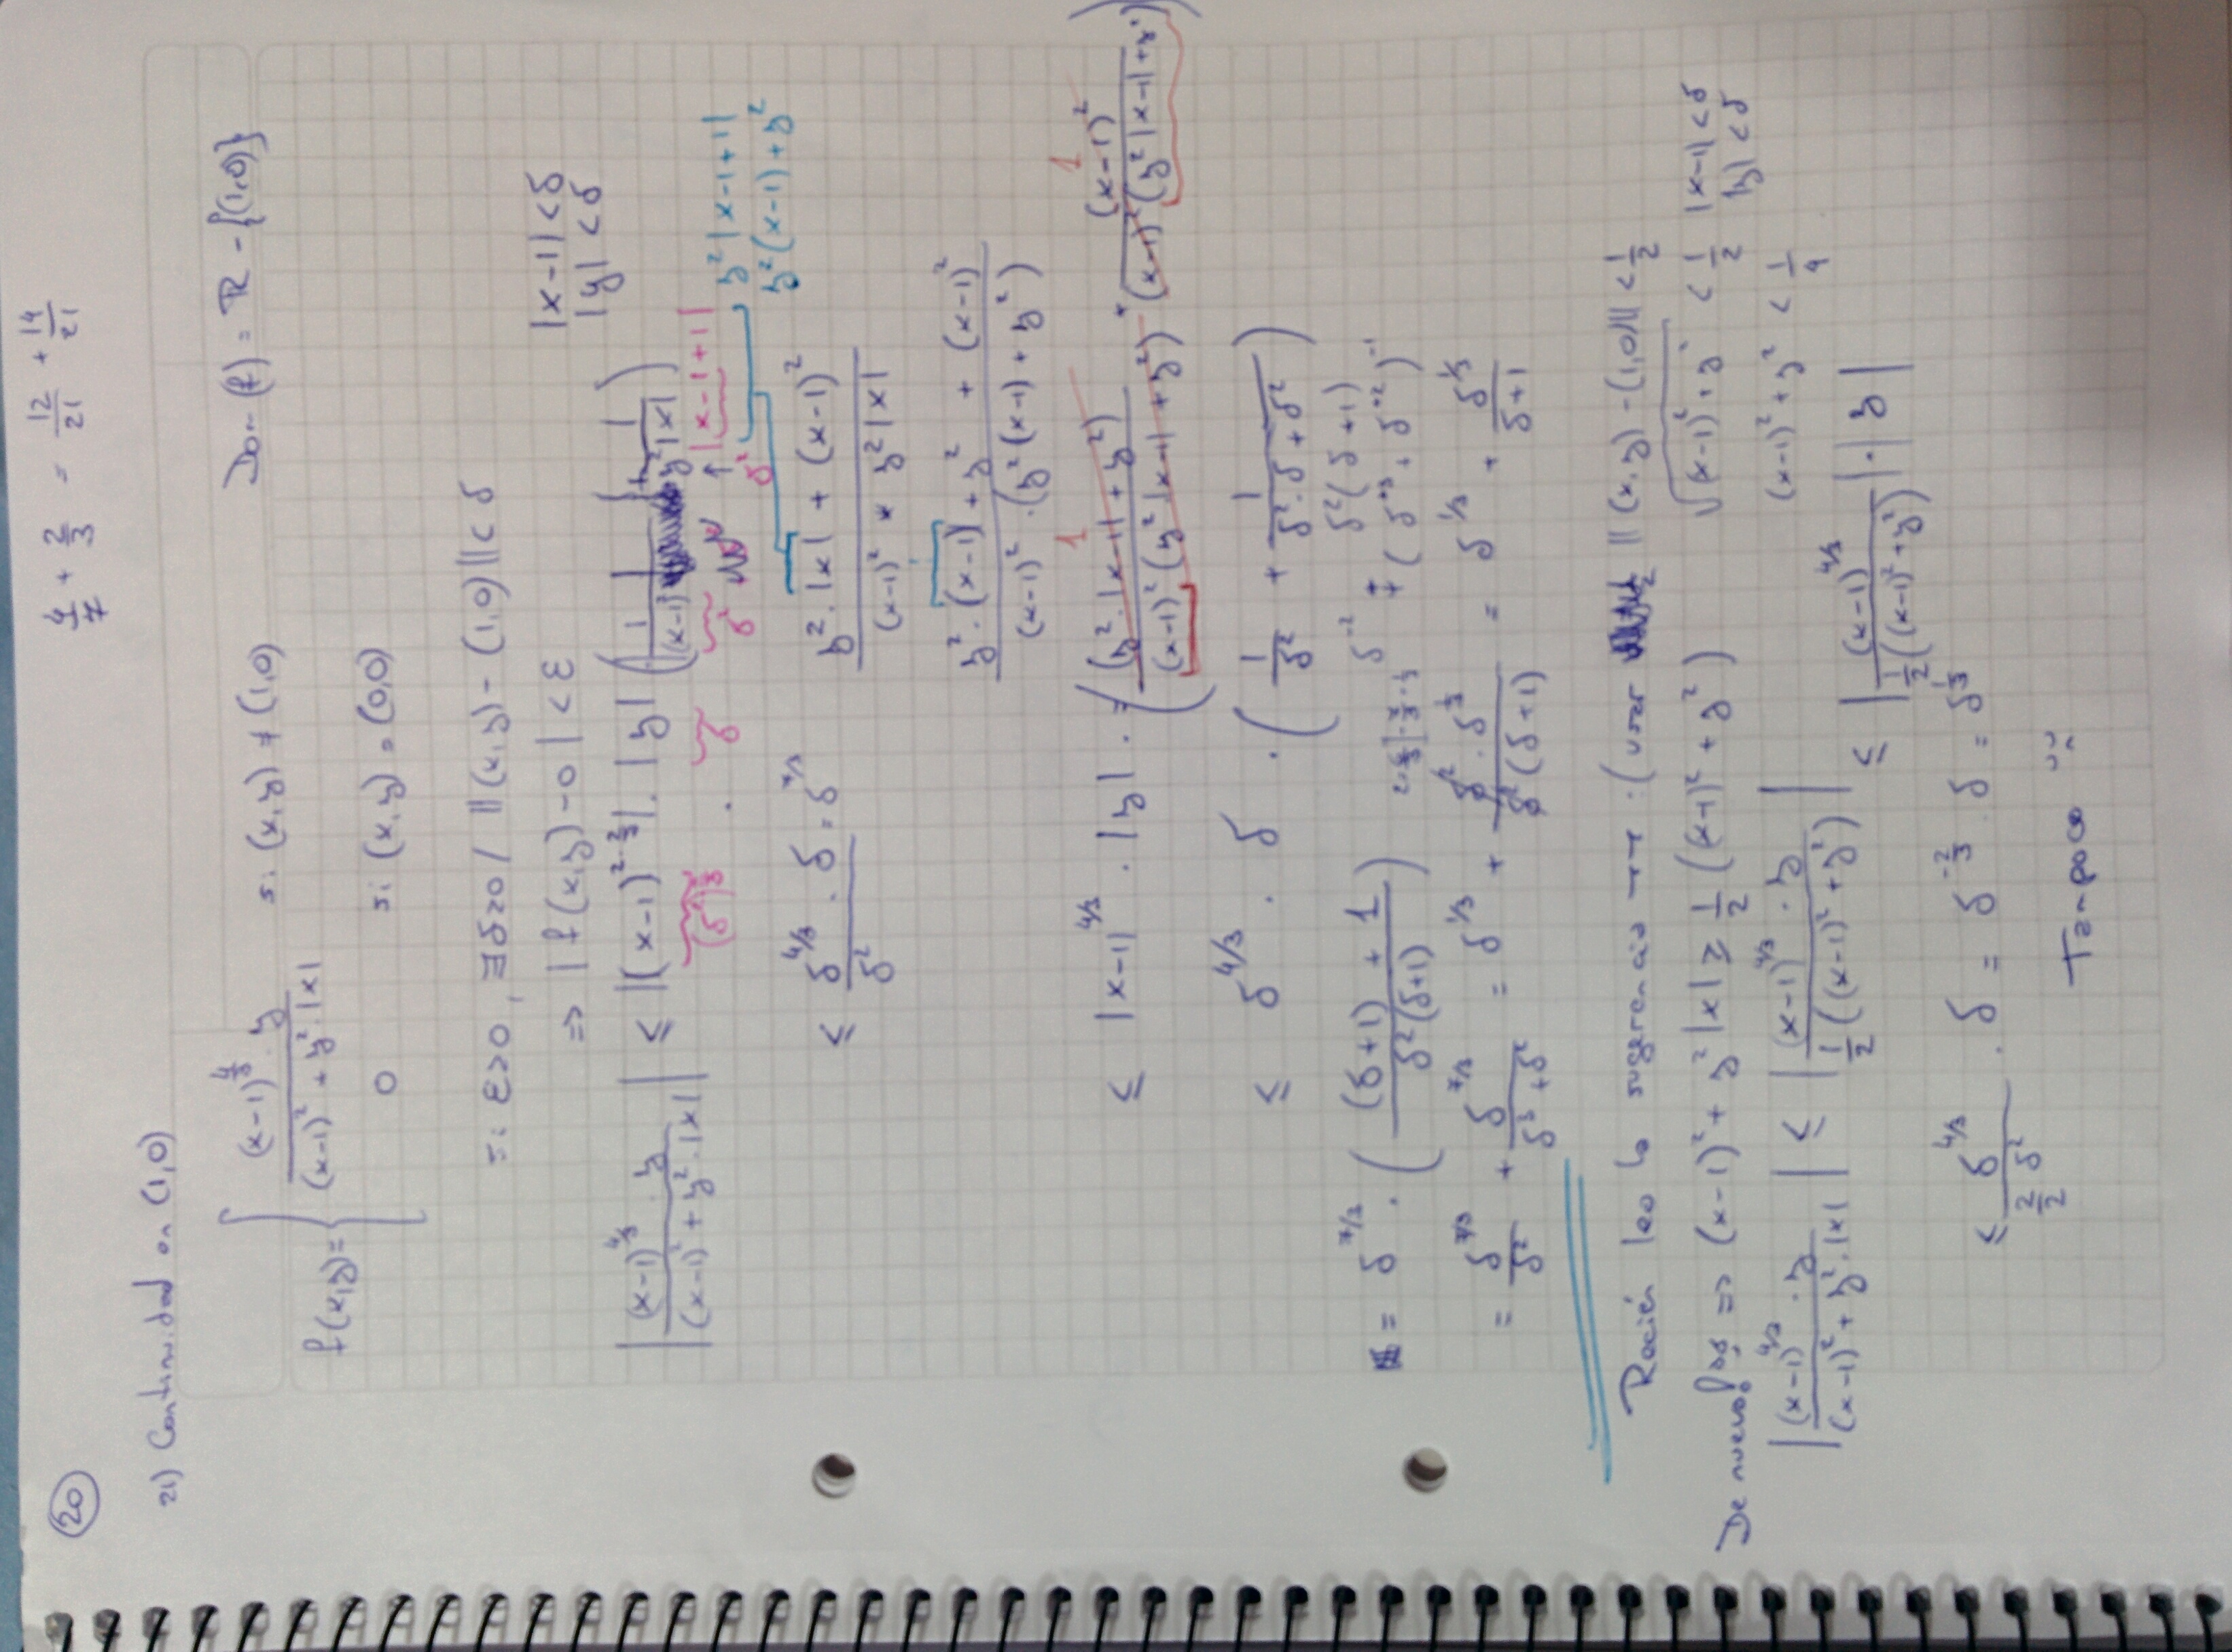 20
4/7 + 2/3 = 12/21 + 14/21
21) Continuidad en (1,0)
f(x,y) = { (x-1)^{4/3} · y / ((x-1)² + y² · |x|) si (x,y) ≠ (1,0) Dom (f) = ℝ - {(1,0)}
0 si (x,y) = (0,0)
si ε>0, ∃δ>0 / ||(x,y) - (1,0)|| < δ
⇒ |f(x,y) - 0| < ε
|x-1| < δ
|y| < δ
|(x-1)^{4/3} · y / ((x-1)² + y² · |x|)| ≤ |(x-1)^{2-2/3}| · |y| (|1/(x-1)²| + 1/(y²|x|))
(δ²)^{2/3} · δ δ² ↑ |x-1+1|
δ²
y² |x-1+1|
y² (x-1) + y²
≤ δ^{4/3} · δ / δ² = δ^{7/3}
(y² · |x| + (x-1)²) / ((x-1)² * y² |x|)
(y² · (x-1) + y² + (x-1)²) / ((x-1)² · (y² (x-1) + y²))
≤ |x-1|^{4/3} · |y| · ((y² · |x-1| + y²) / ((x-1)² (y² |x-1| + y²)) + (x-1)² / ((x-1)² (y² |x-1| + y²)))
1 1
≤ δ^{4/3} · δ · (1/δ² + 1/(δ² · δ + δ²))
δ² (δ+1)
= δ^{7/3} · (((δ+1) + 1) / (δ² (δ+1))) δ^{-2} + (δ^{+3} + δ^{+2})^{-1}
= δ^{7/3}/δ² + δ^{7/3}/(δ³ + δ²) = δ^{1/3} + δ² · δ^{1/3} / (δ² (δ+1)) = δ^{1/3} + δ^{1/3}/(δ+1)
Recién leo la sugerencia ¬¬ :( usar ||(x,y) - (1,0)|| < 1/2
De nuevo! ⇒ (x-1)² + y² |x| ≥ 1/2 ((x-1)² + y²) √((x-1)² + y²) < 1/2 |x-1| < δ
|y| < δ
(x-1)² + y² < 1/4
|(x-1)^{4/3} · y / ((x-1)² + y² · |x|)| ≤ |(x-1)^{4/3} · y / (1/2 ((x-1)² + y²))|
≤ |(x-1)^{4/3} / (1/2 ((x-1)² + y²))| · |y|
≤ δ^{4/3} / (2/2 δ²) · δ = δ^{-2/3} · δ = δ^{1/3}
Tampoco